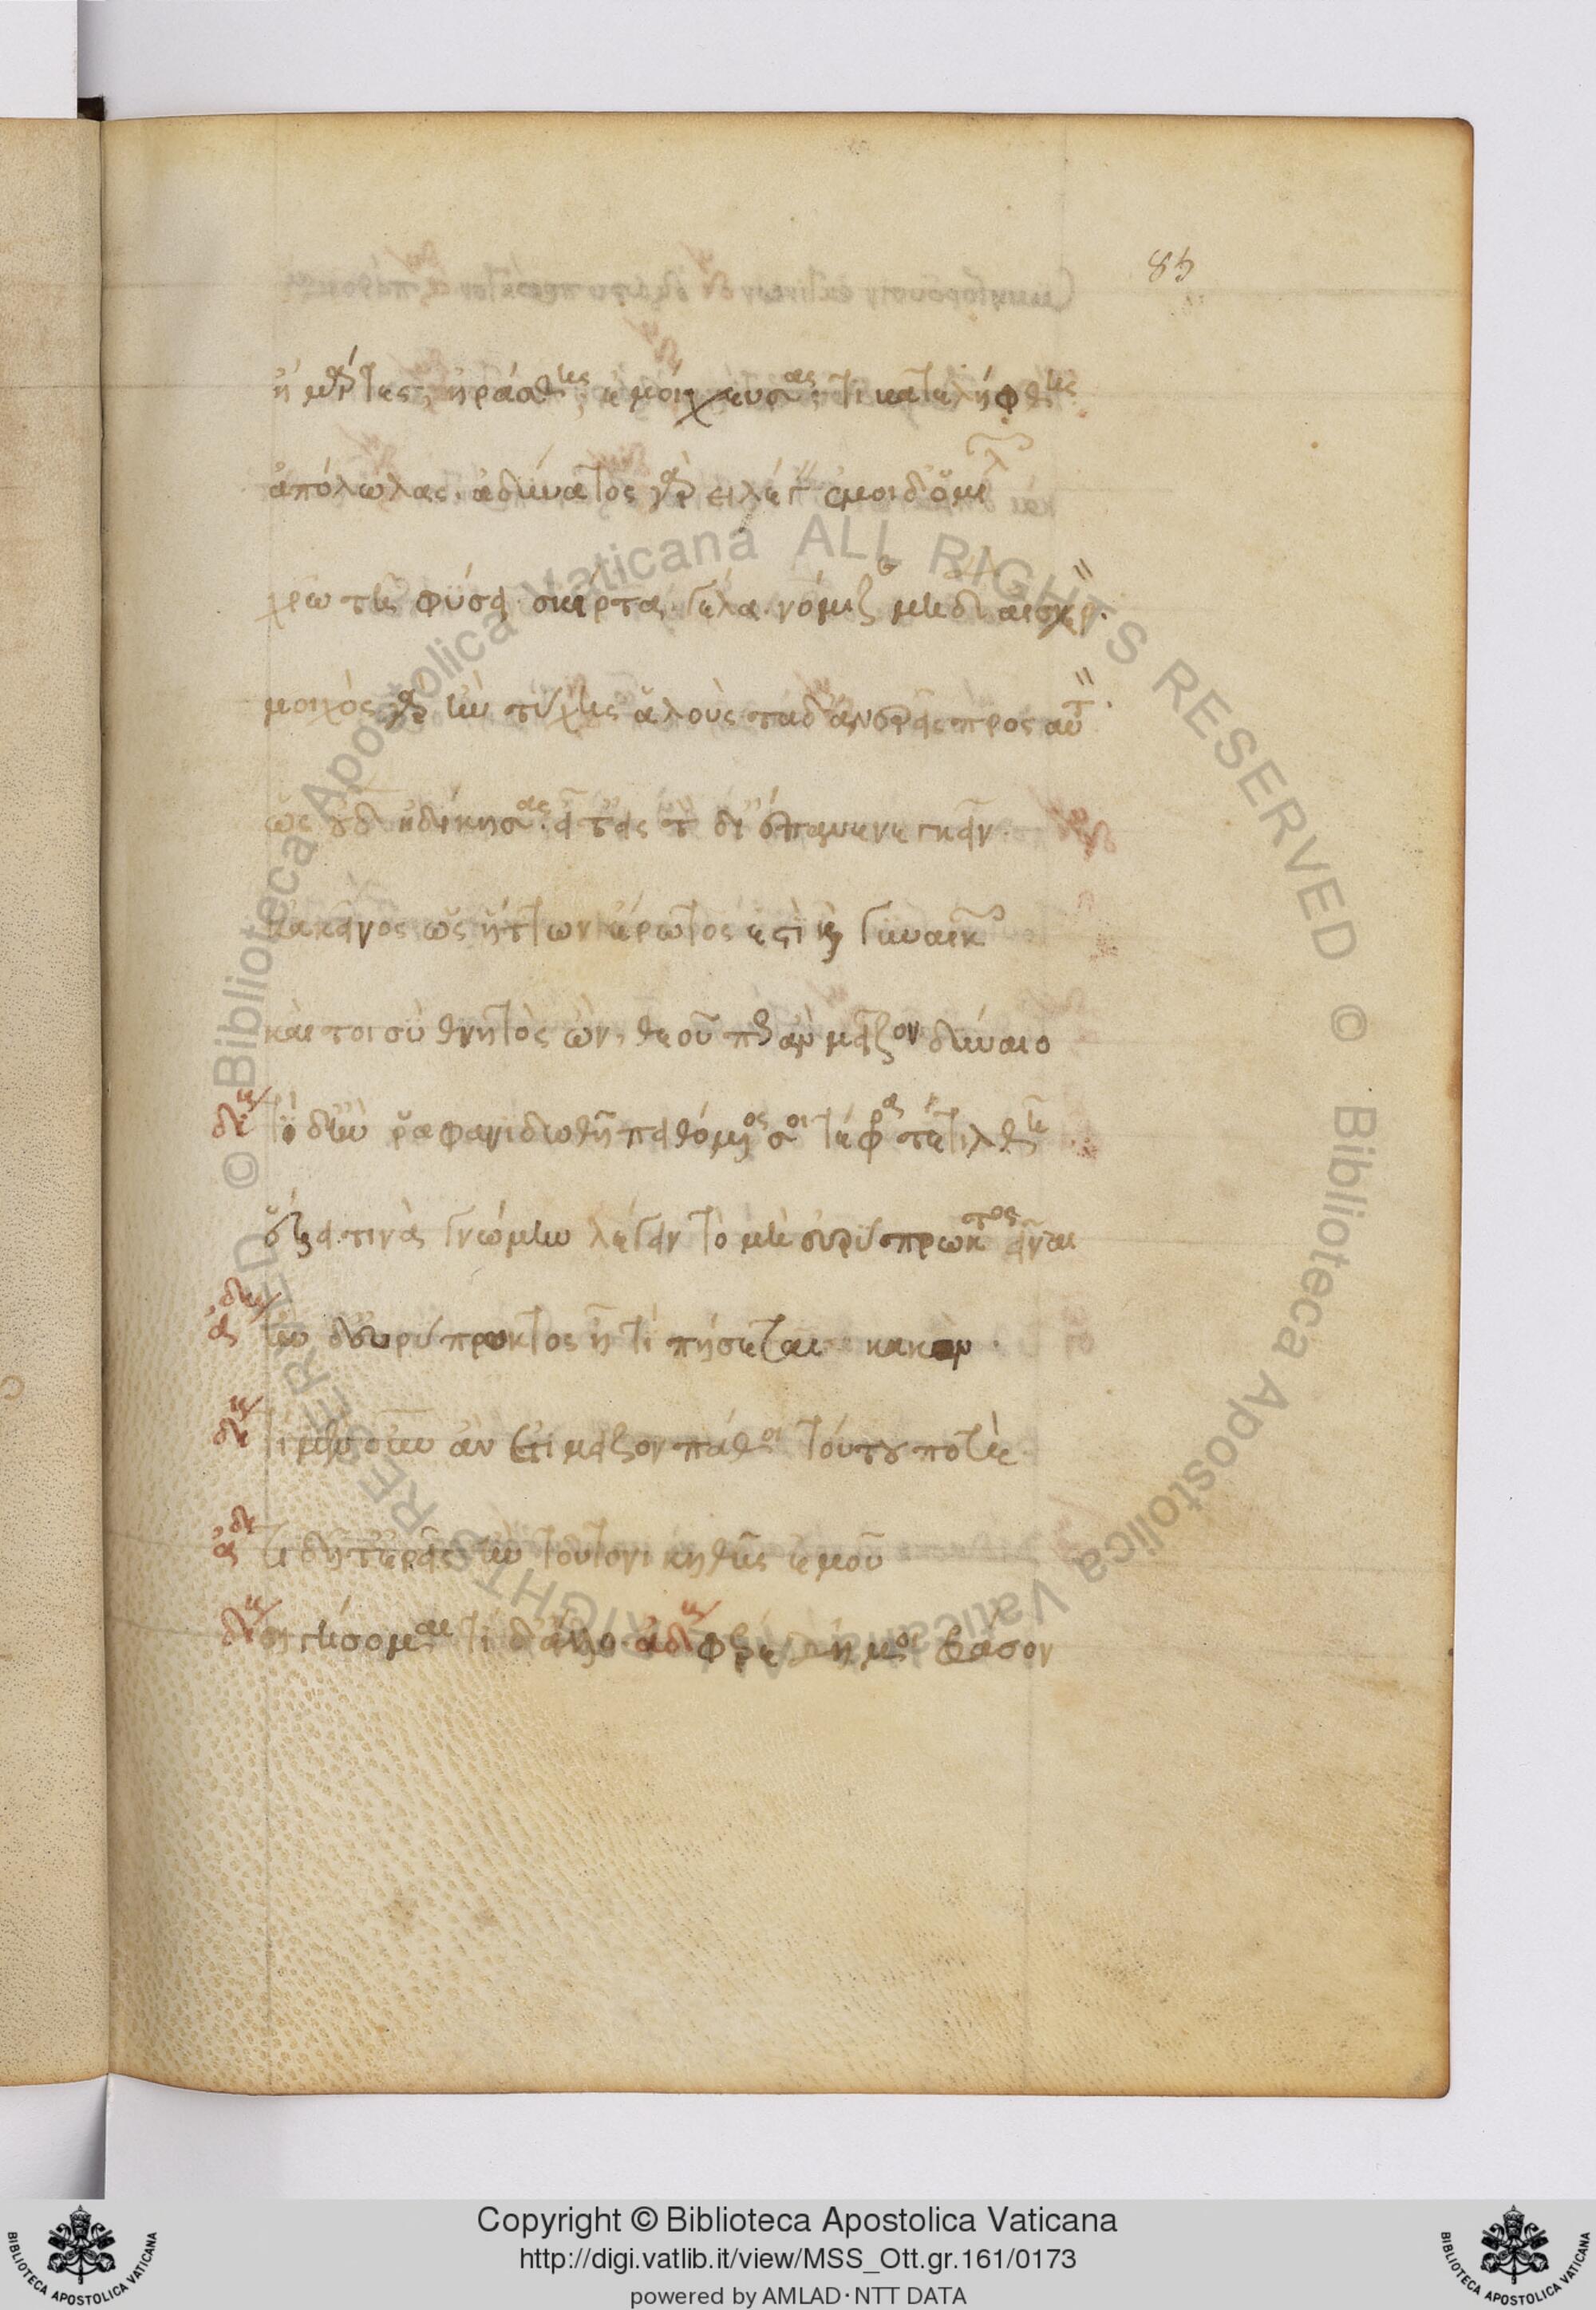 85
ἥμαρτες, ἠράσθης, ἐμοίχευσάς τι κατελήφθης
ἀπόλωλας. ἀδύνατος γὰρ εἶ λέγειν ἐμοὶ δ' ὁμιλ
χρῶ τῇ φύσει. σκίρτα. γέλα. νόμιζε μηδὲν αἰσχρ.
μοιχὸς γὰρ ἢν τύχῃς ἁλοὺς τάδ' ἀντερεῖς πρὸς αὐτ.
ὡς οὐδὲν ἠδίκησας. εἶτ' εἰς τὸν δί' ἐπανενεγκεῖν
κἀκεῖνος ὡς ἥττων ἔρωτός ἐστι καὶ γυναικῶν
καίτοι σὺ θνητὸς ὢν, θεοῦ πῶς ἂν μεῖζον δύναιο
δι τί δ' ἢν ῥαφανιδωθῇ πειθόμενός σοι τέφρᾳ τε τιλθῇ
ἕξει τινὰ γνώμην λέγειν τὸ μὴ εὐρύπρωκτος εἶναι
ἄδι ἢν δ' εὐρύπρωκτος ᾖ τί πείσεται κακόν.
δι τί μὲν οὖν ἂν ἔτι μεῖζον πάθοι τούτου ποτέ
ἄδι τί δῆτ' ἐρεῖς ἢν τοῦτο νικηθῇς ἐμοῦ
δι σιγήσομαι τί δ' ἄλλο. ἄδι φέρε δή μοι φράσον
Copyright © Biblioteca Apostolica Vaticana
http://digi.vatlib.it/view/MSS_Ott.gr.161/0173
powered by AMLAD·NTT DATA